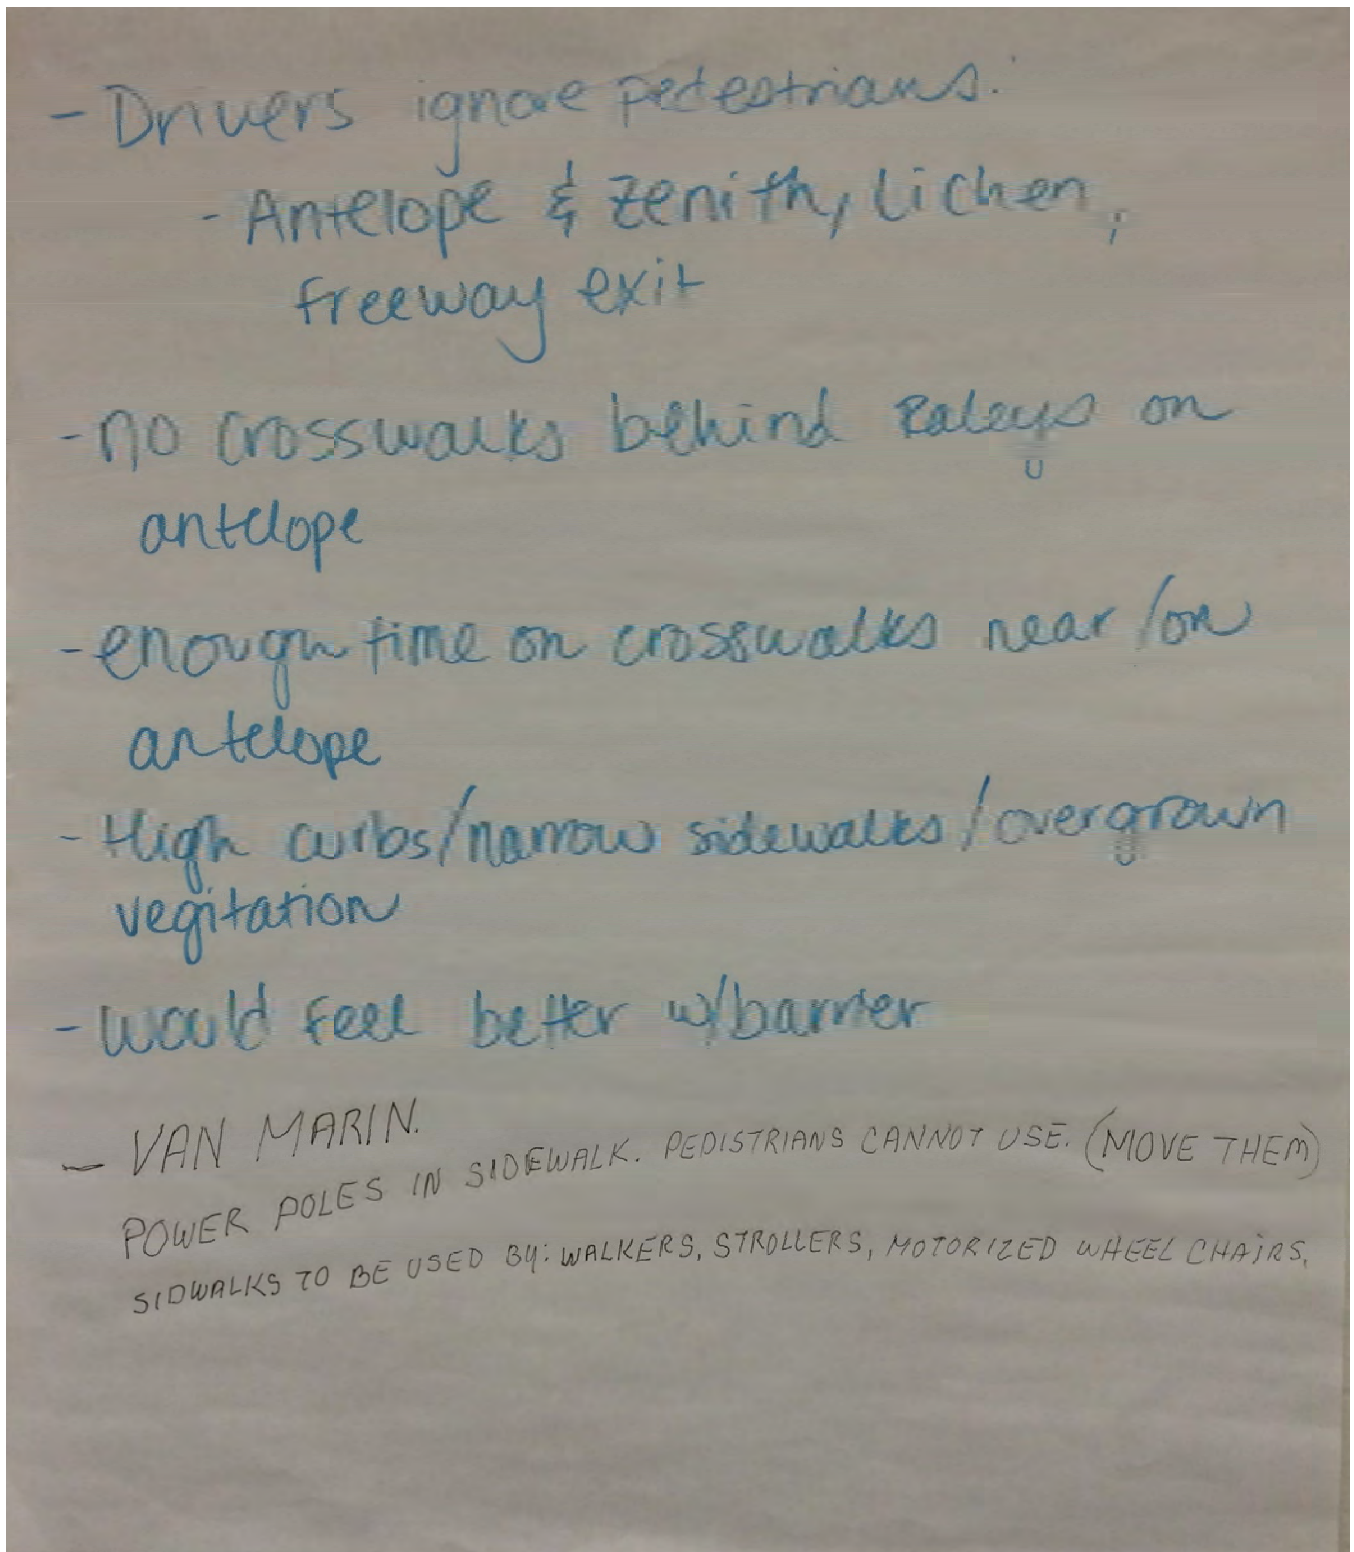 - Drivers ignore pedestrians.
- Antelope & Zenith, Lichen,
freeway exit
- no crosswalks behind Raleys on
antelope
- enough time on crosswalks near/on
antelope
- High curbs/narrow sidewalks/overgrown
vegitation
- would feel better w/barrier
- VAN MARIN.
POWER POLES IN SIDEWALK. PEDISTRIANS CANNOT USE. (MOVE THEM)
SIDWALKS TO BE USED BY: WALKERS, STROLLERS, MOTORIZED WHEEL CHAIRS,